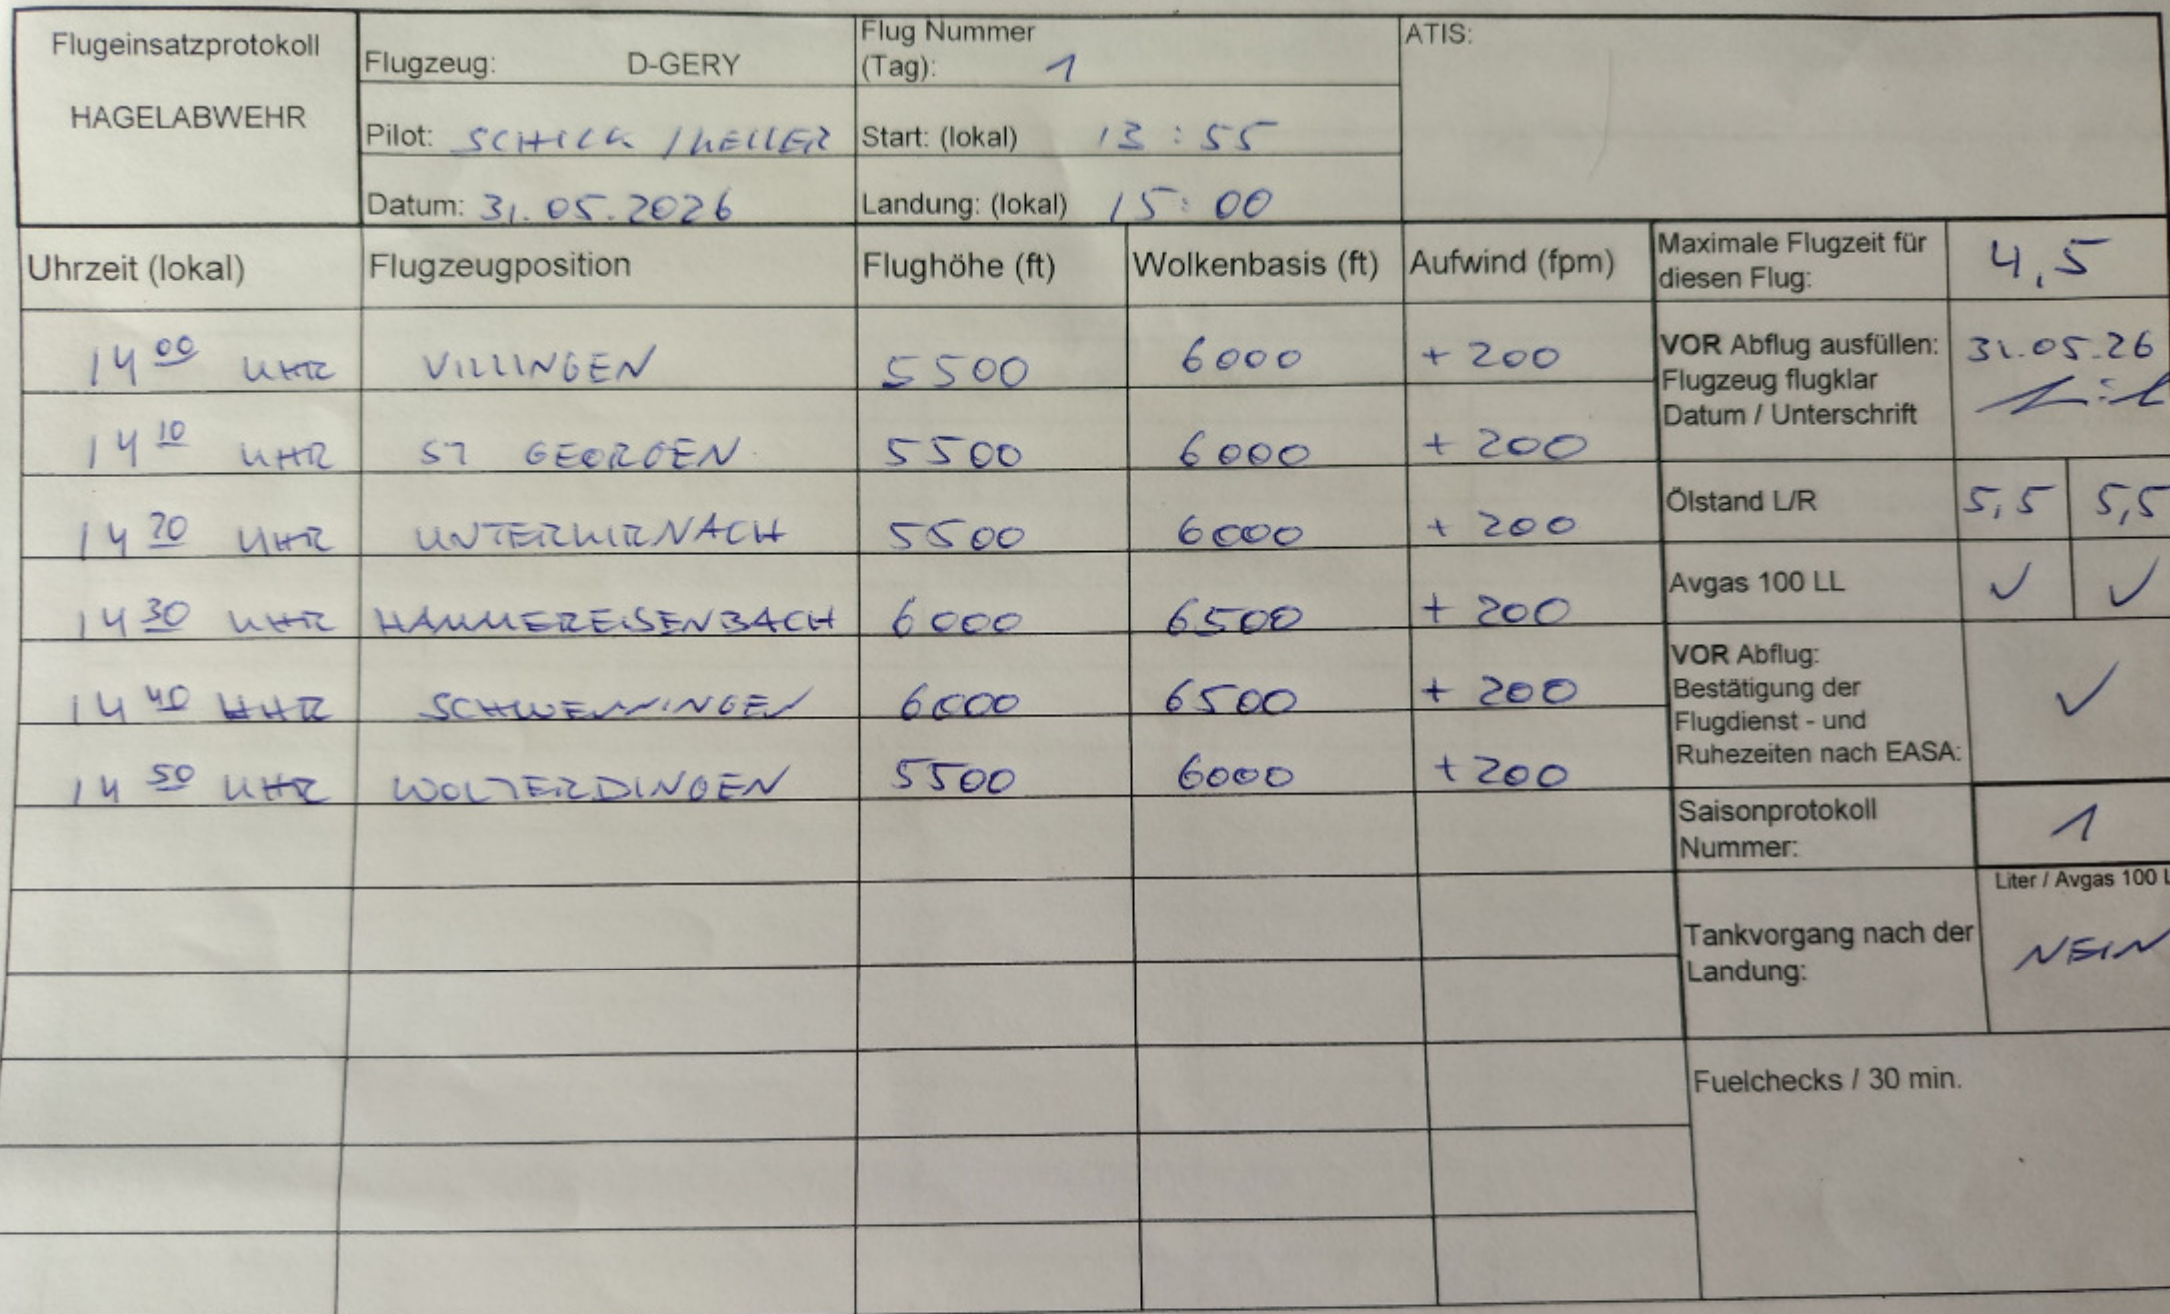 Flugeinsatzprotokoll
HAGELABWEHR
Flugzeug: D-GERY
Pilot: SCHICK / KELLER
Datum: 31.05.2026
Flug Nummer
(Tag): 1
Start: (lokal) 13:55
Landung: (lokal) 15:00
ATIS:
Uhrzeit (lokal) Flugzeugposition Flughöhe (ft) Wolkenbasis (ft) Aufwind (fpm)
14 00 UHR VILLINGEN 5500 6000 + 200
14 10 UHR ST GEORGEN 5500 6000 + 200
14 20 UHR UNTERKIRNACH 5500 6000 + 200
14 30 UHR HAMMEREISENBACH 6000 6500 + 200
14 40 UHR SCHWENNINGEN 6000 6500 + 200
14 50 UHR WOLTERDINGEN 5500 6000 + 200
Maximale Flugzeit für
diesen Flug: 4,5
VOR Abflug ausfüllen: 31.05.26
Flugzeug flugklar
Datum / Unterschrift
Ölstand L/R 5,5 5,5
Avgas 100 LL ✓ ✓
VOR Abflug:
Bestätigung der
Flugdienst - und ✓
Ruhezeiten nach EASA:
Saisonprotokoll
Nummer: 1
Liter / Avgas 100 L
Tankvorgang nach der
Landung: NEIN
Fuelchecks / 30 min.